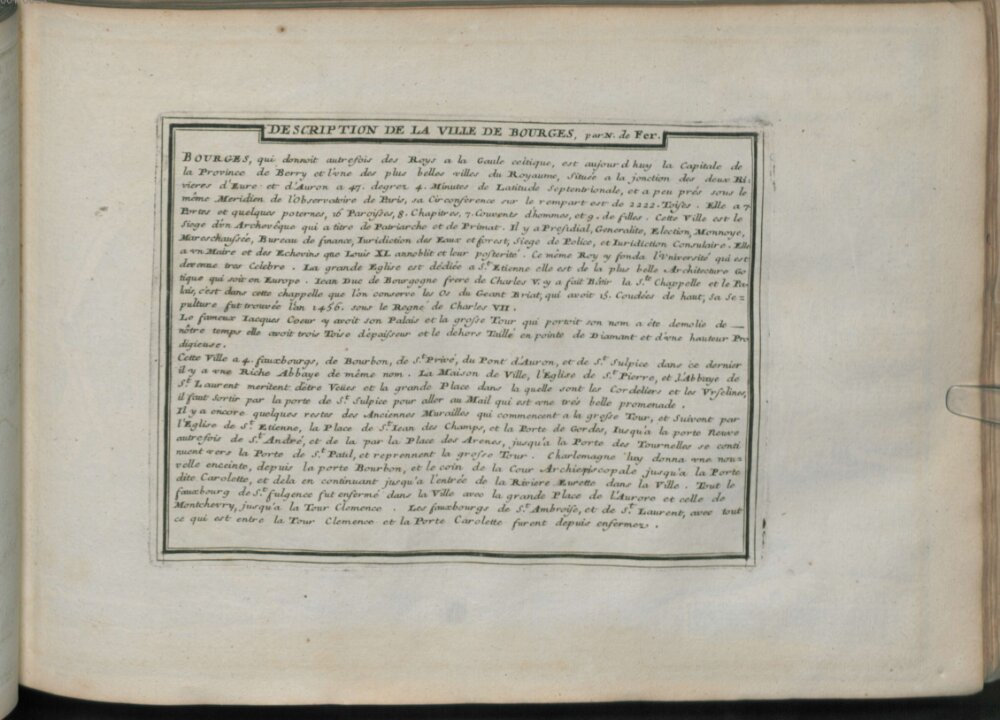 DESCRIPTION DE LA VILLE DE BOURGES, par N. de Fer.
BOURGES, qui donnoit autrefois des Roys a la Gaule celtique, est aujourd huy la Capitale de
la Province de Berry et l'vne des plus belles villes du Royaume, Située a la jonction des deux Ri-
vieres d'Eure et d'Auron a 47. degrez 4. Minutes de Latitude Septentrionale, et a peu prés sous le
même Meridien de l'Observatoire de Paris, sa Circonference sur le rempart est de 2222. Toises. Elle a 7
Portes et quelques poternes, 16 Paroisses, 8. Chapitres, 7. Couvents d'hommes, et 9. de filles. Cette Ville est le
Siege d'vn Archevêque qui a titre de Patriarche et de Primat. Il y a Presidial, Generalite, Election, Monnoye,
Mareschaussée, Bureau de finance, Iuridiction des Eaux et forest, Siege de Police, et Iuridiction Consulaire. Elle
a vn Maire et des Echevins que Louis XI. annoblit et leur posterité. Ce même Roy y fonda l'Vniversité qui est
devenue tres Celebre. La grande Eglise est dédiée a St. Etienne elle est de la plus belle Architecture Go
tique qui soit en Europe. Iean Duc de Bourgogne frere de Charles V. y a fait Bâtir la Ste. Chappelle et le Pa-
lais, c'est dans cette chappelle que l'on conserve les Os du Geant Briat, qui avoit 15. Coudées de haut, sa Se-
pulture fut trouvée l'an 1456. sous le Regne de Charles VII.
Le fameux Iacques Coeur y avoit son Palais et la grosse Tour qui portoit son nom a éte demolie de —
nôtre temps elle avoit trois Toise d'épaisseur et le dehors Taillé en pointe de Diamant et d'vne hauteur Pro
digieuse.
Cette Ville a 4. fauxbourgs, de Bourbon, de St. Privé, du Pont d'Auron, et de St. Sulpice dans ce dernier
il y a vne Riche Abbaye de même nom. La Maison de Ville, l'Eglise de St. Pierre, et l'Abbaye de
St. Laurent meritent détre Veües et la grande Place dans la quelle sont les Cordeliers et les Vrselines,
il faut Sortir par la porte de St. Sulpice pour aller au Mail qui est vne trés belle promenade.
Il y a encore quelques restes des Anciennes Murailles qui commencent a la grosse Tour, et Suivent par
l'Eglise de St. Etienne, la Place de St. Iean des Champs, et la Porte de Gordes, Iusqu'a la porte Neuve
autrefois de St. André, et de la par la Place des Arenes, jusqu'a la Porte des Tournelles se conti
nuent vers la Porte de St. Paul, et reprennent la grosse Tour. Charlemagne luy donna vne nou-
velle enceinte, depuis la porte Bourbon, et le coin de la Cour Archiepiscopale jusqu'a la Porte
dite Carolette, et dela en continuant jusqu'a l'entrée de la Riviere Eurette dans la Ville. Tout le
fauxbourg de St. fulgence fut enfermé dans la Ville avec la grande Place de l'Aurore et celle de
Montchevry, jusqu'a la Tour Clemence. Les fauxbourgs de St. Ambroise, et de St. Laurent, avec tout
ce qui est entre la Tour Clemence et la Porte Carolette furent depuis enfermez.